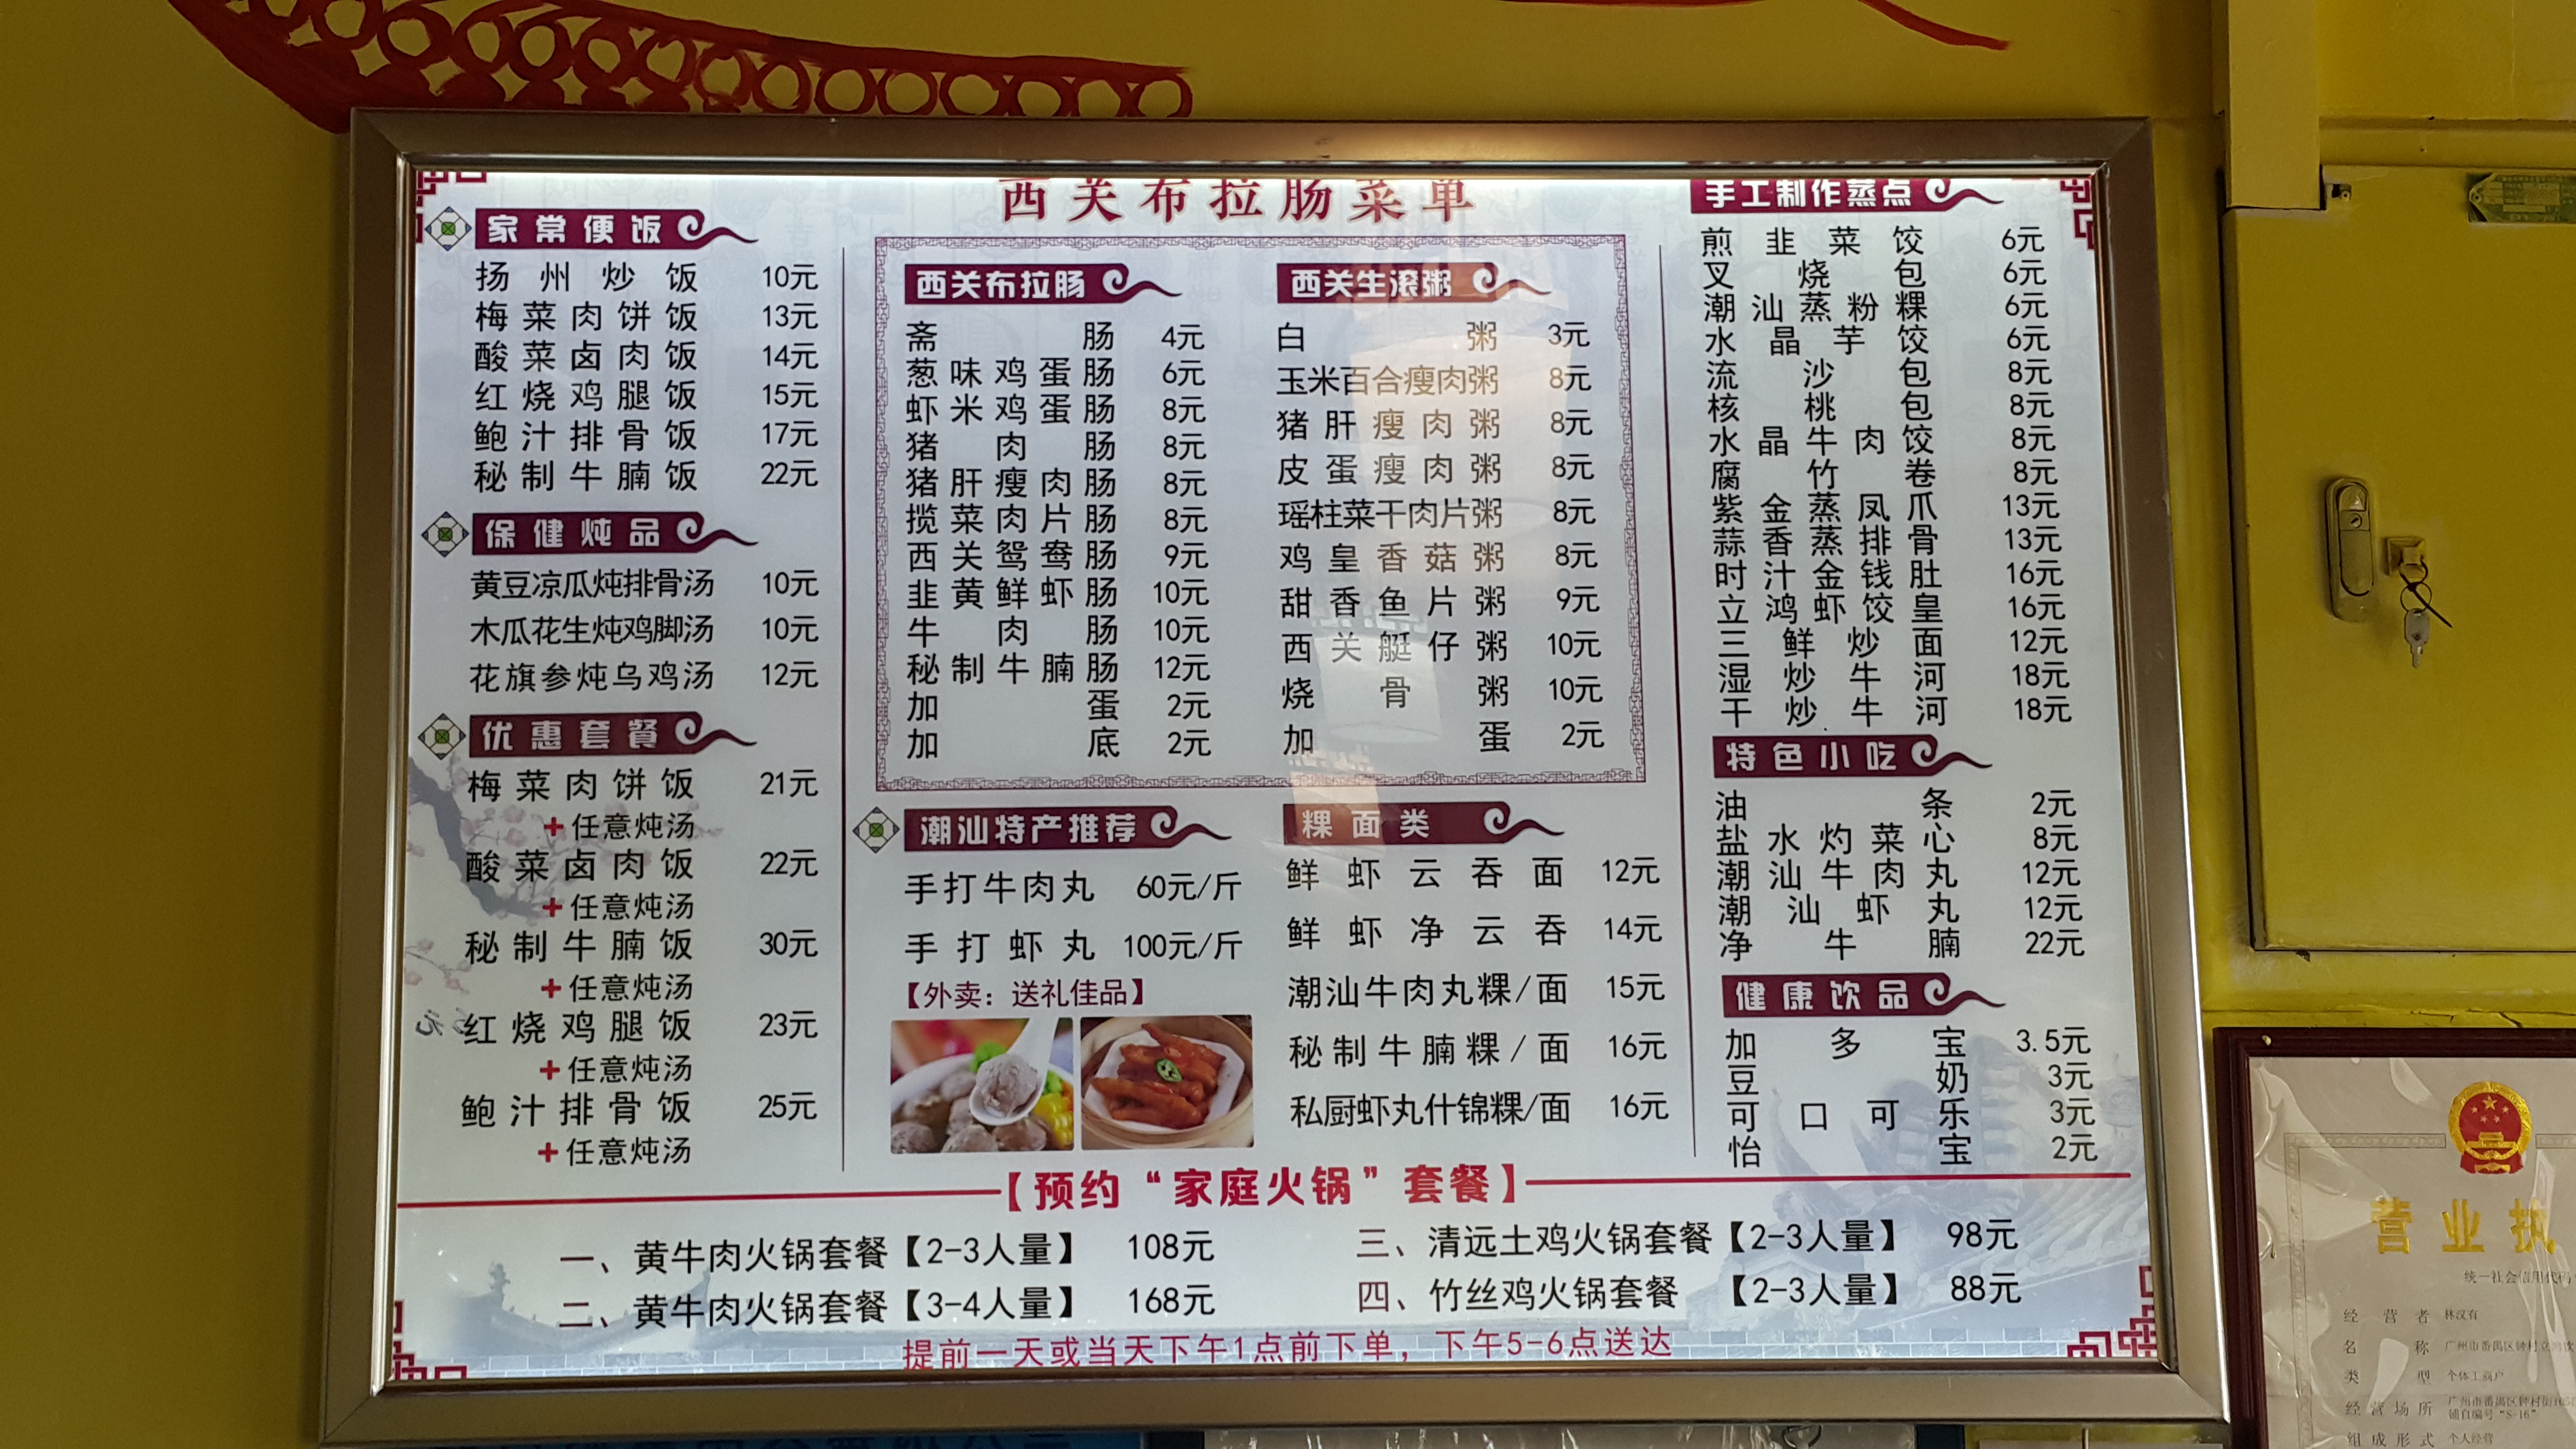 西关布拉肠菜单
家常便饭
扬州炒饭 10元
梅菜肉饼饭 13元
酸菜卤肉饭 14元
红烧鸡腿饭 15元
鲍汁排骨饭 17元
秘制牛腩饭 22元
保健炖品
黄豆凉瓜炖排骨汤 10元
木瓜花生炖鸡脚汤 10元
花旗参炖乌鸡汤 12元
优惠套餐
梅菜肉饼饭 21元
+任意炖汤
酸菜卤肉饭 22元
+任意炖汤
秘制牛腩饭 30元
+任意炖汤
红烧鸡腿饭 23元
+任意炖汤
鲍汁排骨饭 25元
+任意炖汤
西关布拉肠
斋肠 4元
葱味鸡蛋肠 6元
虾米鸡蛋肠 8元
猪肉肠 8元
猪肝瘦肉肠 8元
揽菜肉片肠 8元
西关鸳鸯肠 9元
韭黄鲜虾肠 10元
牛肉肠 10元
秘制牛腩肠 12元
加蛋 2元
加底 2元
西关生滚粥
白粥 3元
玉米百合瘦肉粥 8元
猪肝瘦肉粥 8元
皮蛋瘦肉粥 8元
瑶柱菜干肉片粥 8元
鸡皇香菇粥 8元
甜香鱼片粥 9元
西关艇仔粥 10元
烧骨粥 10元
加蛋 2元
潮汕特产推荐
手打牛肉丸 60元/斤
手打虾丸 100元/斤
【外卖：送礼佳品】
粿面类
鲜虾云吞面 12元
鲜虾净云吞 14元
潮汕牛肉丸粿/面 15元
秘制牛腩粿/面 16元
私厨虾丸什锦粿/面 16元
手工制作蒸点
煎韭菜饺 6元
叉烧包 6元
潮汕蒸粉粿 6元
水晶芋饺 6元
流沙包 8元
核桃包 8元
水晶牛肉饺 8元
腐竹卷 8元
紫金蒸凤爪 13元
蒜香蒸排骨 13元
时汁金钱肚 16元
立鸿虾饺皇 16元
三鲜炒面 12元
湿炒牛河 18元
干炒牛河 18元
特色小吃
油条 2元
盐水灼菜心 8元
潮汕牛肉丸 12元
潮汕虾丸 12元
净牛腩 22元
健康饮品
加多宝 3.5元
豆奶 3元
可口可乐 3元
怡宝 2元
【预约“家庭火锅”套餐】
一、黄牛肉火锅套餐【2-3人量】 108元
二、黄牛肉火锅套餐【3-4人量】 168元
三、清远土鸡火锅套餐【2-3人量】 98元
四、竹丝鸡火锅套餐 【2-3人量】 88元
提前一天或当天下午1点前下单，下午5-6点送达
营业执
统一社会信用代码
经营者 林汉有
名称
类型 个体工商户
经营场所
铺自编号“S-16”
组成形式 个人经营